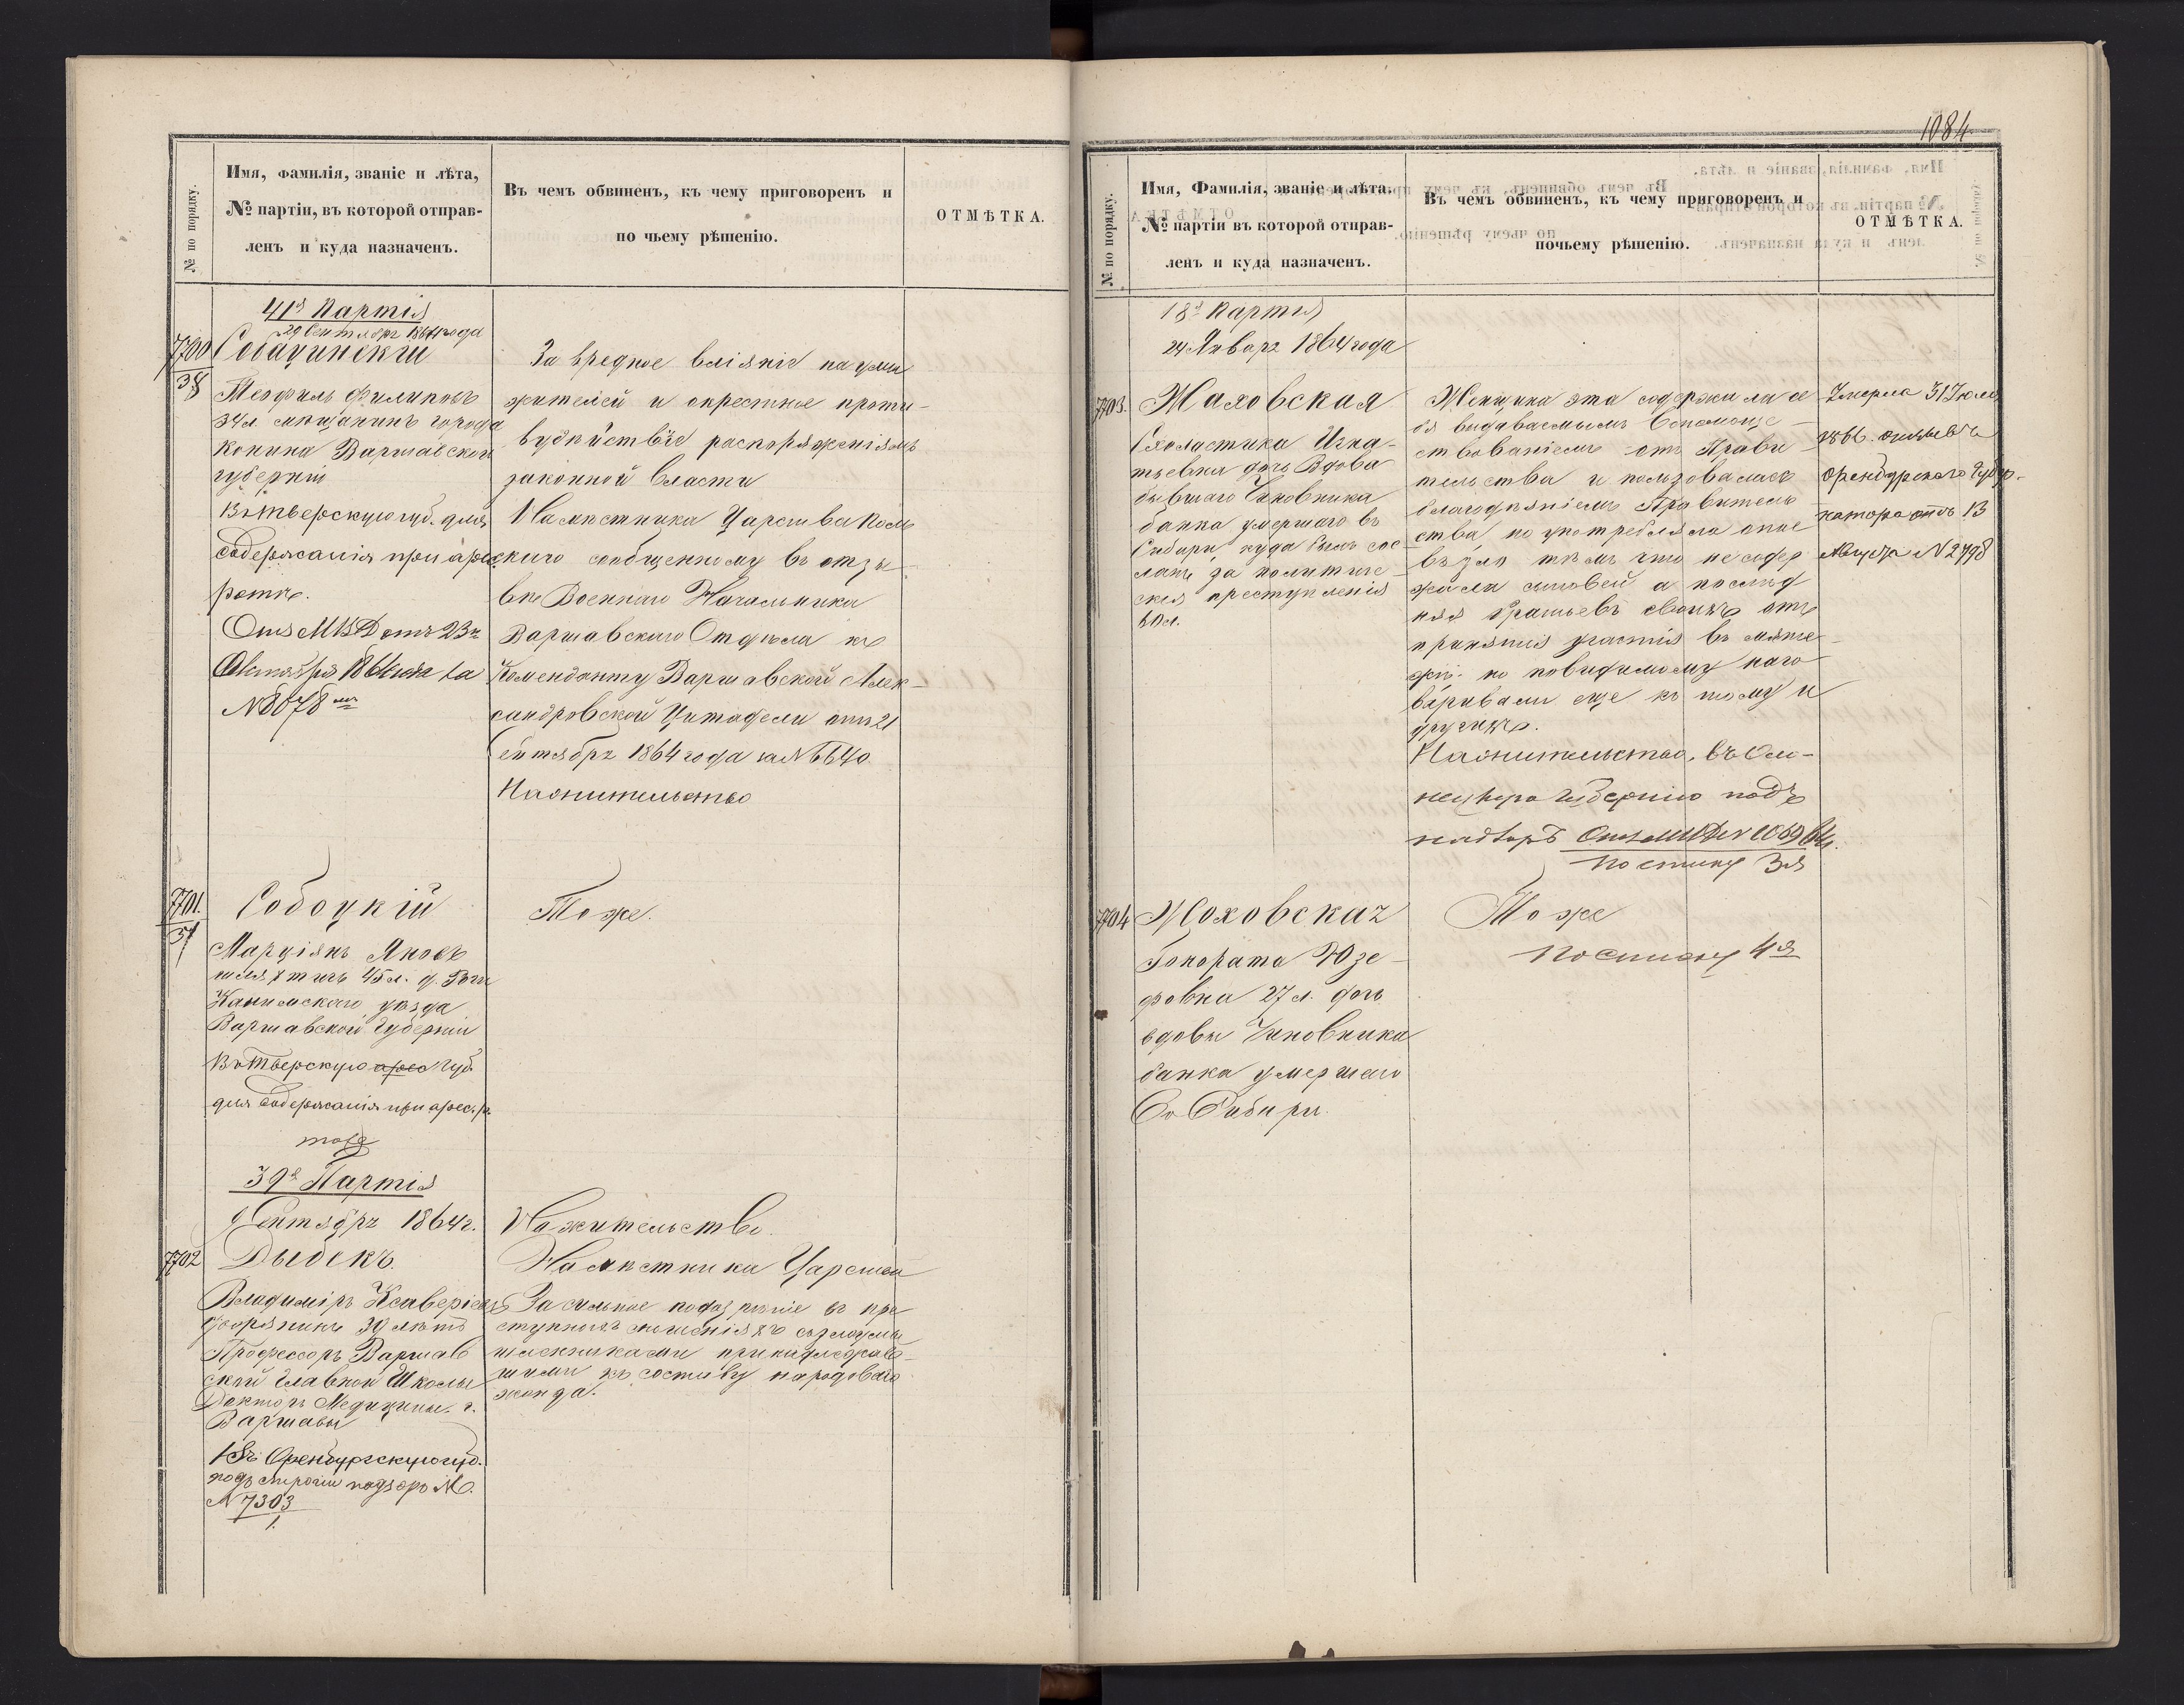 № по порядку.
Имя, фамилія, званіе и лѣта,
№ партіи, въ которой отправ-
ленъ и куда назначенъ.
Въ чемъ обвиненъ, къ чему приговоренъ и
по чьему рѣшенію.
ОТМѢТКА.
41я Партія
29 Сентября 1864 года
7700
38
Теофиль Филиповъ
34 л. мѣщанинъ города
Конина Варшавской
губерніи
Въ Тверскую губ. для
содержанія при арес.
ротѣ.
От МВД отъ 23го
Октября 1864 года за
N 8078
За вредное вліяніе на умы
жителей и окрестные проти-
вудѣйствіе распоряженіямъ
законной власти
Намѣстника Царства Поль
скаго сообщенному въ отзы-
вѣ Военнаго Начальника
Варшавскаго Отдѣла къ
Коменданту Варшавской Алек-
сандровской Цитадели отъ 21
Сентября 1864 года за N 6640.
На жительство
7701.
Собоцкій
Марціянъ Яновъ
шляхтичъ 45 л. д.
уѣзда
Варшавской Губерніи
Въ Тверскую арес губ.
для содержанія при арес. р.
тоже
Тоже.
39я Партія
9 Сентября 1864 г.
7702
Дыбекъ.
Владиміръ Ксаверіевъ
дворянинъ 30 лѣтъ
Профессоръ Варшав
ской Главной Школы
Докторъ Медицины. г.
Варшавы
Въ Оренбургскую губ.
подъ строгій надзоръ М.
N 7303
1.
На жительство.
Намѣстника Царства
За сильное подозрѣніе въ пре
ступныхъ сношеніяхъ съ злоумы
шленниками принадлежав-
шими къ составу народоваго
жонда.
1084
№ по порядку.
Имя, Фамилія, званіе и лѣта.
№ партіи въ которой отправ-
ленъ и куда назначенъ.
Въ чемъ обвиненъ, къ чему приговоренъ и
почьему рѣшенію.
ОТМѢТКА.
18я Партія
24 Января 1864 года
7703.
Жаховская
Схоластика Игна-
тьевна дочь Вдова
бывшаго Чиновника
банка умершаго въ
Сибири, куда былъ сос
ланъ за политиче-
скія преступленія
60 л.
Женщина эта содержалась
выдаваемымъ Вспомоще-
ствованіемъ отъ Прави
тельства и пользовалась
благодѣяніемъ Правитель
ства, но употребляла оное
въ зло тѣмъ что не содер
жала сыновей а послѣд
нхъ братьевъ своихъ отъ
принятія участія въ мяте-
жѣ. но повидимому наго-
варивали еще къ тому и
другихъ.
На жительство, въ Оло-
нецкую губернію подъ
надзоръ
По списку 3я
Умерла 31 Іюля
1866. отзывъ
Оренбургскаго Губер-
натора отъ 13
Августа N 2498
7704
Жоховская
Гонората Юзе-
фовна 27 л. дочь
вдовы Чиновника
банка умершаго
Въ Сибири.
Тоже
По списку 4я